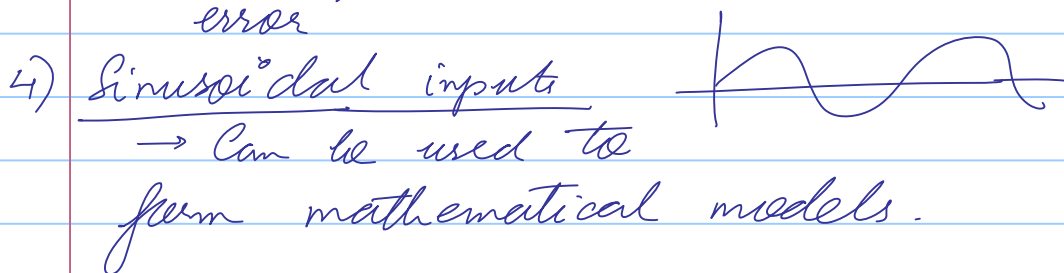 error
4) Sinusoidal inputs
→ Can be used to
form mathematical models.